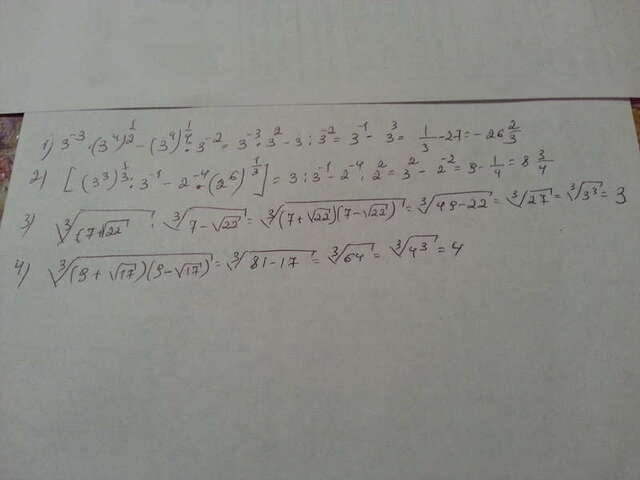 1) 3⁻³ · (3⁴)^½ − (3⁴)^¼ : 3⁻² = 3⁻³ · 3² − 3 : 3⁻² = 3⁻¹ − 3³ = 1/3 − 27 = −26 2/3
2) [(3³)^⅓ : 3⁻¹ − 2⁻⁴ · (2⁶)^⅓] = 3 : 3⁻¹ − 2⁻⁴ · 2² = 3² − 2⁻² = 9 − 1/4 = 8 3/4
3) ∛(7+√22) · ∛(7−√22) = ∛((7+√22)(7−√22)) = ∛(49−22) = ∛27 = ∛3³ = 3
4) ∛((9+√17)(9−√17)) = ∛(81−17) = ∛64 = ∛4³ = 4